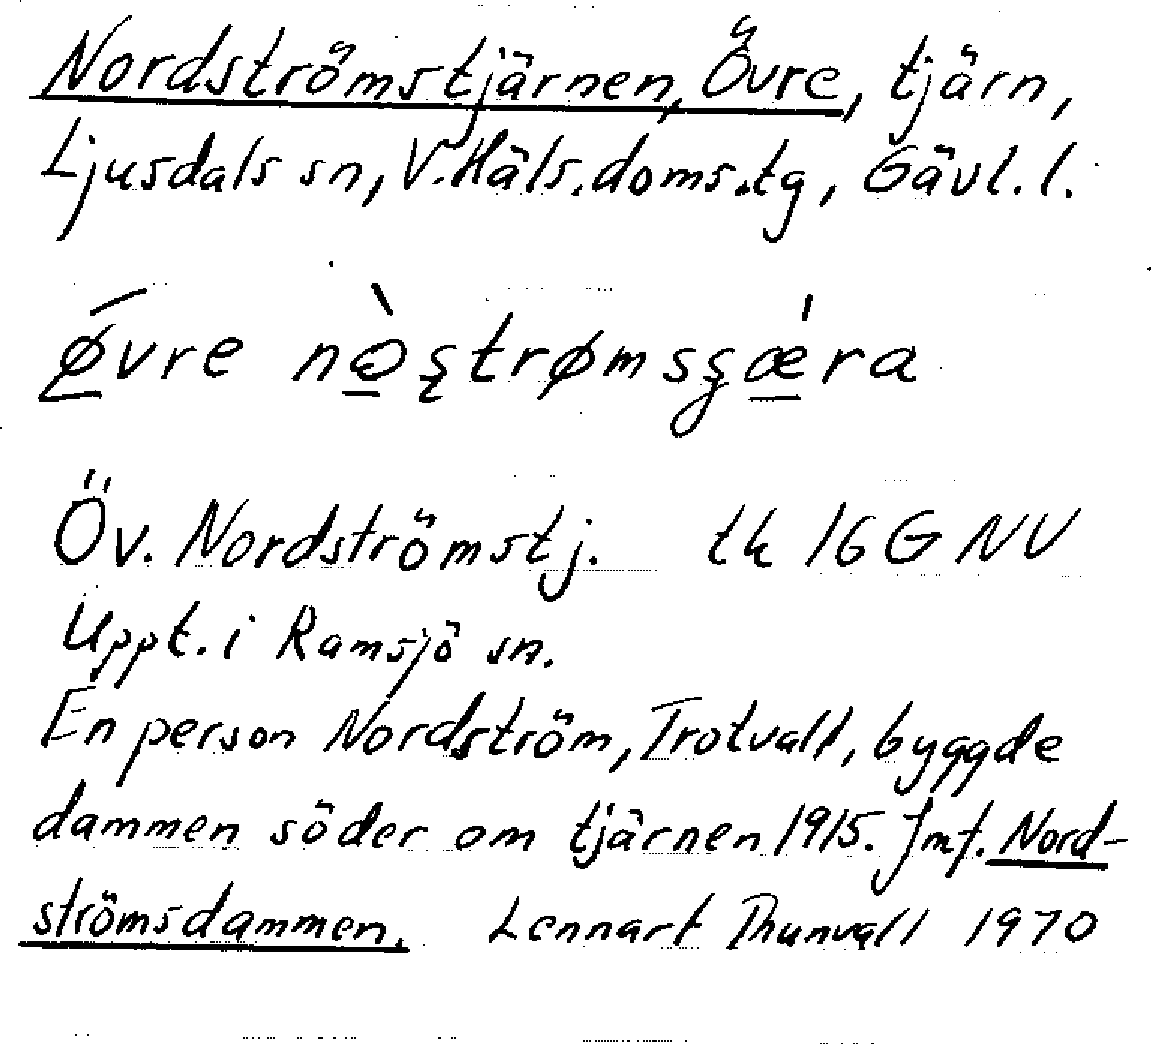 Nordströmstjärnen, Övre, tjärn,
Ljusdals sn, V. Häls. doms. tg, Gävl. l.
Öv. Nordströmstj. tk 16 G NV
Uppt. i Ramsjö sn.
En person Nordström, Trotvall, byggde
dammen söder om tjärnen 1915. Jmf. Nord-
strömsdammen. Lennart Thunvall 1970